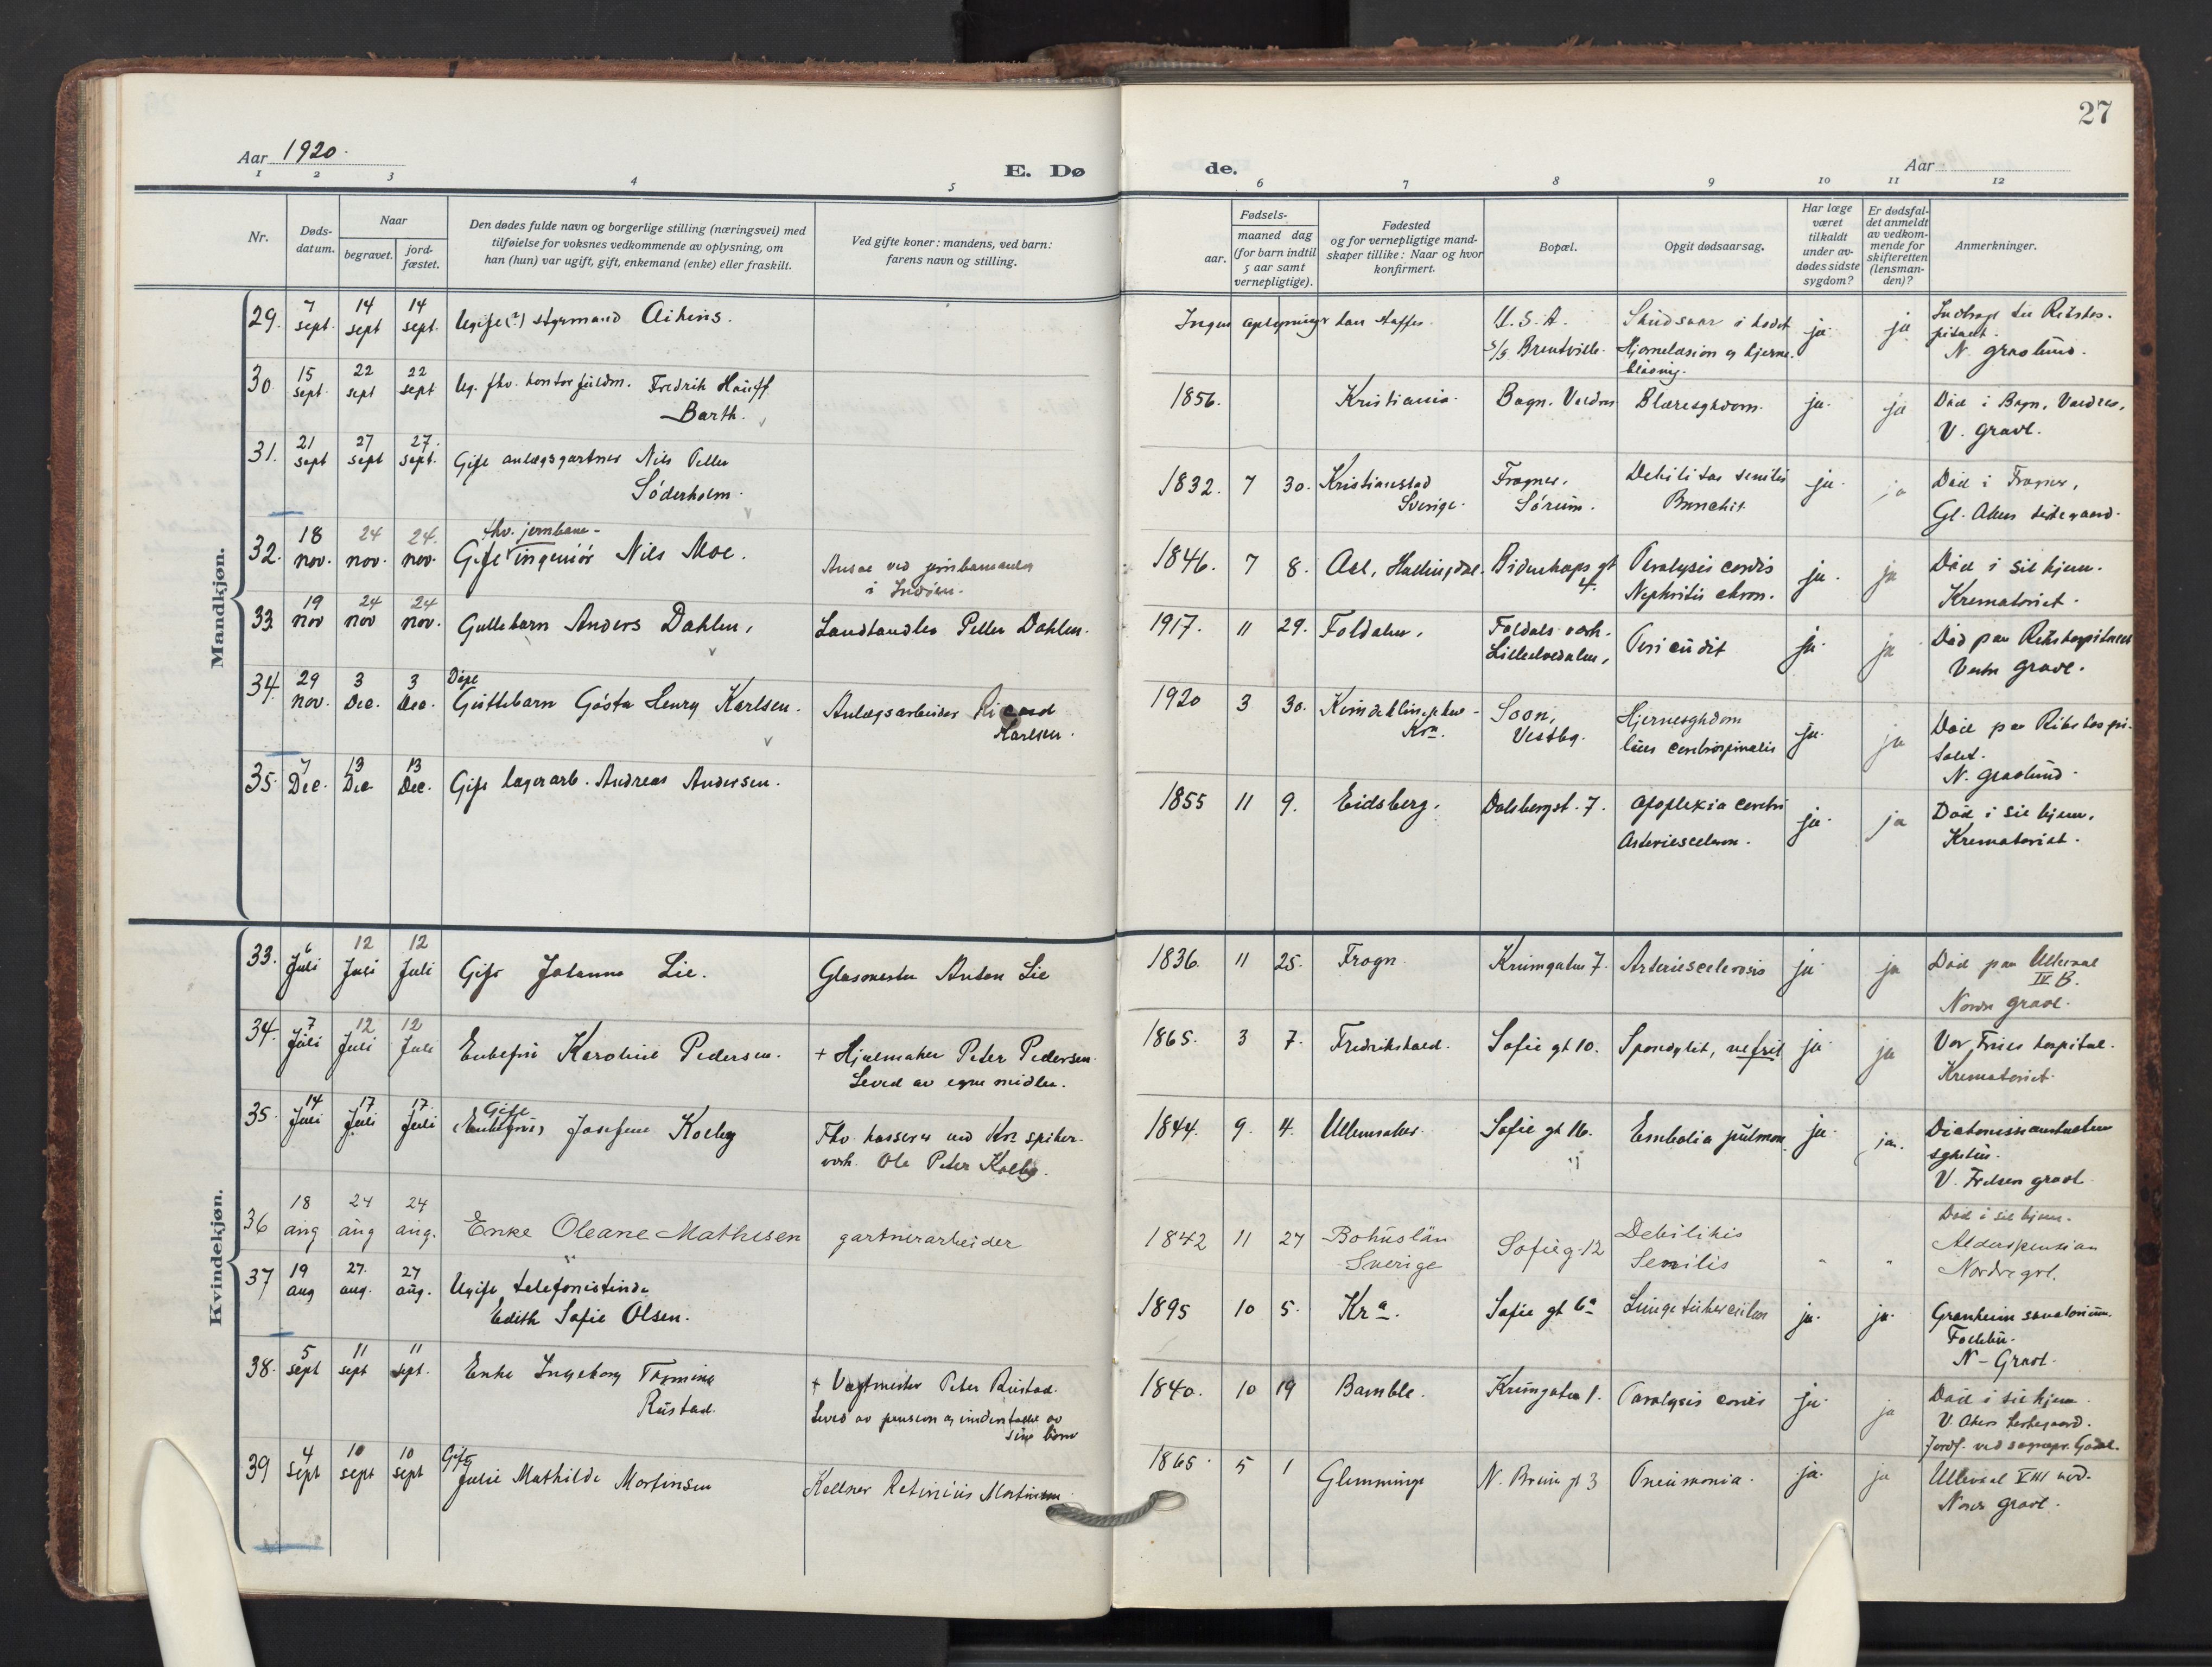 27
Aar 1920.
E. Dø
de.
Aar
1 2 3 4 5 6 7 8 9 10 11 12
Nr.
Døds-
datum.
Naar
begravet.
jord-
fæstet.
Den dødes fulde navn og borgerlige stilling (næringsvei) med
tilføielse for voksnes vedkommende av oplysning, om
han (hun) var ugift, gift, enkemand (enke) eller fraskilt.
Ved gifte koner: mandens, ved barn:
farens navn og stilling.
Fødsels-
aar.
maaned dag
(for barn indtil
5 aar samt
vernepligtige).
Fødested
og for vernepligtige mand-
skaper tillike: Naar og hvor
konfirmert.
Bopæl.
Opgit dødsaarsag.
Har læge
været
tilkaldt
under av-
dødes sidste
sygdom?
Er dødsfal-
det anmeldt
av vedkom-
mende for
skifteretten
(lensman-
den)?
Anmerkninger.
Mandkjøn.
29. 7 sept. 14 sept 14 sept. Ugift (?) styrmand Aikens.
Ingen oplysninger kan skaffes.
U.S.A.
S/S Brentville.
Skudsaar i hodet
Hjernelæsion og hjerne-
blødning.
ja. ja.
Indbragt til Rikshos-
pitalet.
N. gravlund.
30. 15 sept. 22 sept 22 sept Ug. fhv. kontorfuldm. Fredrik Hauff
Barth.
1856. Kristiania. Bagn. Valdres Blæresygdom. ja. ja
Død i Bagn, Valdres.
V. gravl.
31. 21 sept 27 sept 27. sept. Gift anlægsgartner Nils Petter
Söderholm.
1832. 7 30. Kristianstad
Sverige.
Frogner,
Sørum.
Debilitas senilis
Bronchit.
ja. ja
Død i Frogner,
Gl. Akers kirkegaard.
32. 18 nov. 24 nov. 24. nov. fhv. jernbane-
Gift ingeniør Nils Moe.
Ansat ved jernbaneanlæg
i
1846. 7 8. Aal, Hallingdal. Pilestræde
Paralysis cordis
Nephritis chron.
ja. ja
Død i sit hjem.
Krematoriet.
33. 19 nov 24 nov 24 nov. Guttebarn Anders Dahlen,
Landhandler Petter Dahlen.
1917. 11 29. Foldalen,
Foldals verk.
Lilleelvedalen,
ja. ja
Død paa Rikshospitalet
Vestre gravl.
34. 29 nov. 3 Dec. 3 Dec. Døpt
Guttebarn Gösta Henry Karlsen.
Anlægsarbeider Rikard
Karlsen.
1920 3 30. Kvindeklinikken
Kra.
Soon,
Vestby.
Hjernesygdom
lues cerebrospinalis
ja. ja
Død paa Rikshospi-
talet.
N. gravlund.
35. 7 Dec. 13 Dec 13 Dec. Gift lagerarb. Andreas Andersen.
1855 11 9. Eidsberg. Dalsbergst. 7.
Apoplexia cerebri
Arteriosclerose.
ja. ja
Død i sit hjem.
Krematoriet.
Kvindekjøn.
33. 6 Juli 12 Juli 12 Juli Gift Johanne Lie.
Glasmester Anton Lie
1836. 11 25. Frogn. Krumgaten 7. Arteriosclerosis ja. ja
Død paa Ullevaal
IV B.
Nordre gravl.
34. 7 Juli 12 Juli 12 Juli Enkefru Karoline Pedersen.
+ Hjulmaker Peter Pedersen.
Leved av egne midler.
1865. 3 7. Fredrikstad. Sofie gt 10. Spondylit, nefrit ja. ja
Vor Frues hospital.
Krematoriet.
35. 14 Juli 17 Juli 17. Juli Gift
(Enkefru) Josefine Kolby
Fhv. kasserer ved Kra spiker-
verk. Ole Peter Kolby.
1844. 9. 4. Ullensaker. Sofie gt 16. Embolia pulmon. ja. ja.
Diakonisseanstaltens
sykehus.
V. Frelsers gravl.
36 18 aug 24 aug 24 aug. Enke Oleane Mathisen
gartnerarbeider
1842 11 27 Bohuslän
Sverige
Sofieg. 12
Debilitis
Senilis
" "
Død i sit hjem.
Alderspension
Nordre grl.
37 19 aug 27. aug. 27 aug. Ugift telefonistinde
Edith Sofie Olsen.
1895 10 5. Kra. Sofie gt 6a Lungetuberculos ja. ja.
Granheim sanatorium.
Follebu.
N-Gravl.
38. 5 sept 11 sept 11 sept. Enke Ingeborg Thomine
Rustad.
+ Vagtmester Peter Rustad.
Leved av pension og understøttelse av
sine børn
1840. 10 19 Bamble. Krumgaten 1. Paralysis cordis ja. ja
Død i sit hjem.
V. Akers kirkegaard.
Jordf. ved sognepr. Gadal.
39 4 Sept 10 sept 10 sept Gift
Julie Mathilde Mortinsen
Kellner Mortinsen
1865. 5 1 Glemminge N. Brun gt 3 Pneumonia. ja. ja
Ullevaal VIII avd.
Nordre gravl.